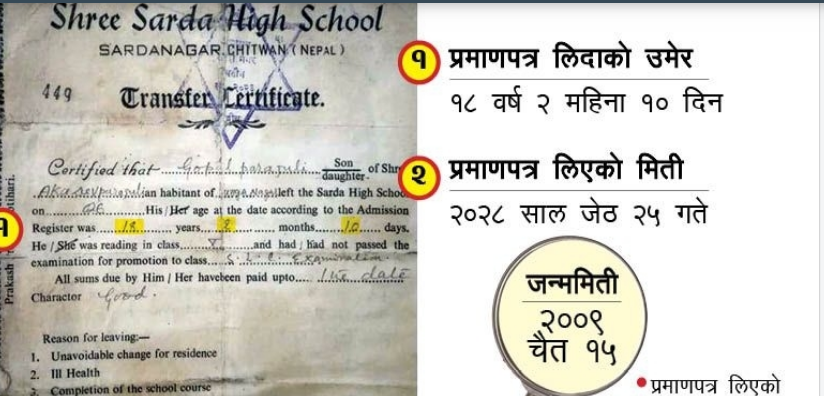 Shree Sarda High School
SARDANAGAR, CHITWAN (NEPAL)
449
Transfer Certificate.
Certified that Gopal parajuli Son daughter of Shr
an habitant of left the Sarda High Schoo
on His / Her age at the date according to the Admission
Register was 18 years 2 months 10 days.
He / She was reading in class X and had / had not passed the
examination for promotion to class S. L. C. Examination.
All sums due by Him / Her havebeen paid upto the date
Charactor Good.
Reason for leaving:—
1. Unavoidable change for residence
2. Ill Health
3. Completion of the school course
Prakash
१
१ प्रमाणपत्र लिदाको उमेर
१८ वर्ष २ महिना १० दिन
२ प्रमाणपत्र लिएको मिती
२०२८ साल जेठ २५ गते
जन्ममिती
२००९
चैत १५
प्रमाणपत्र लिएको